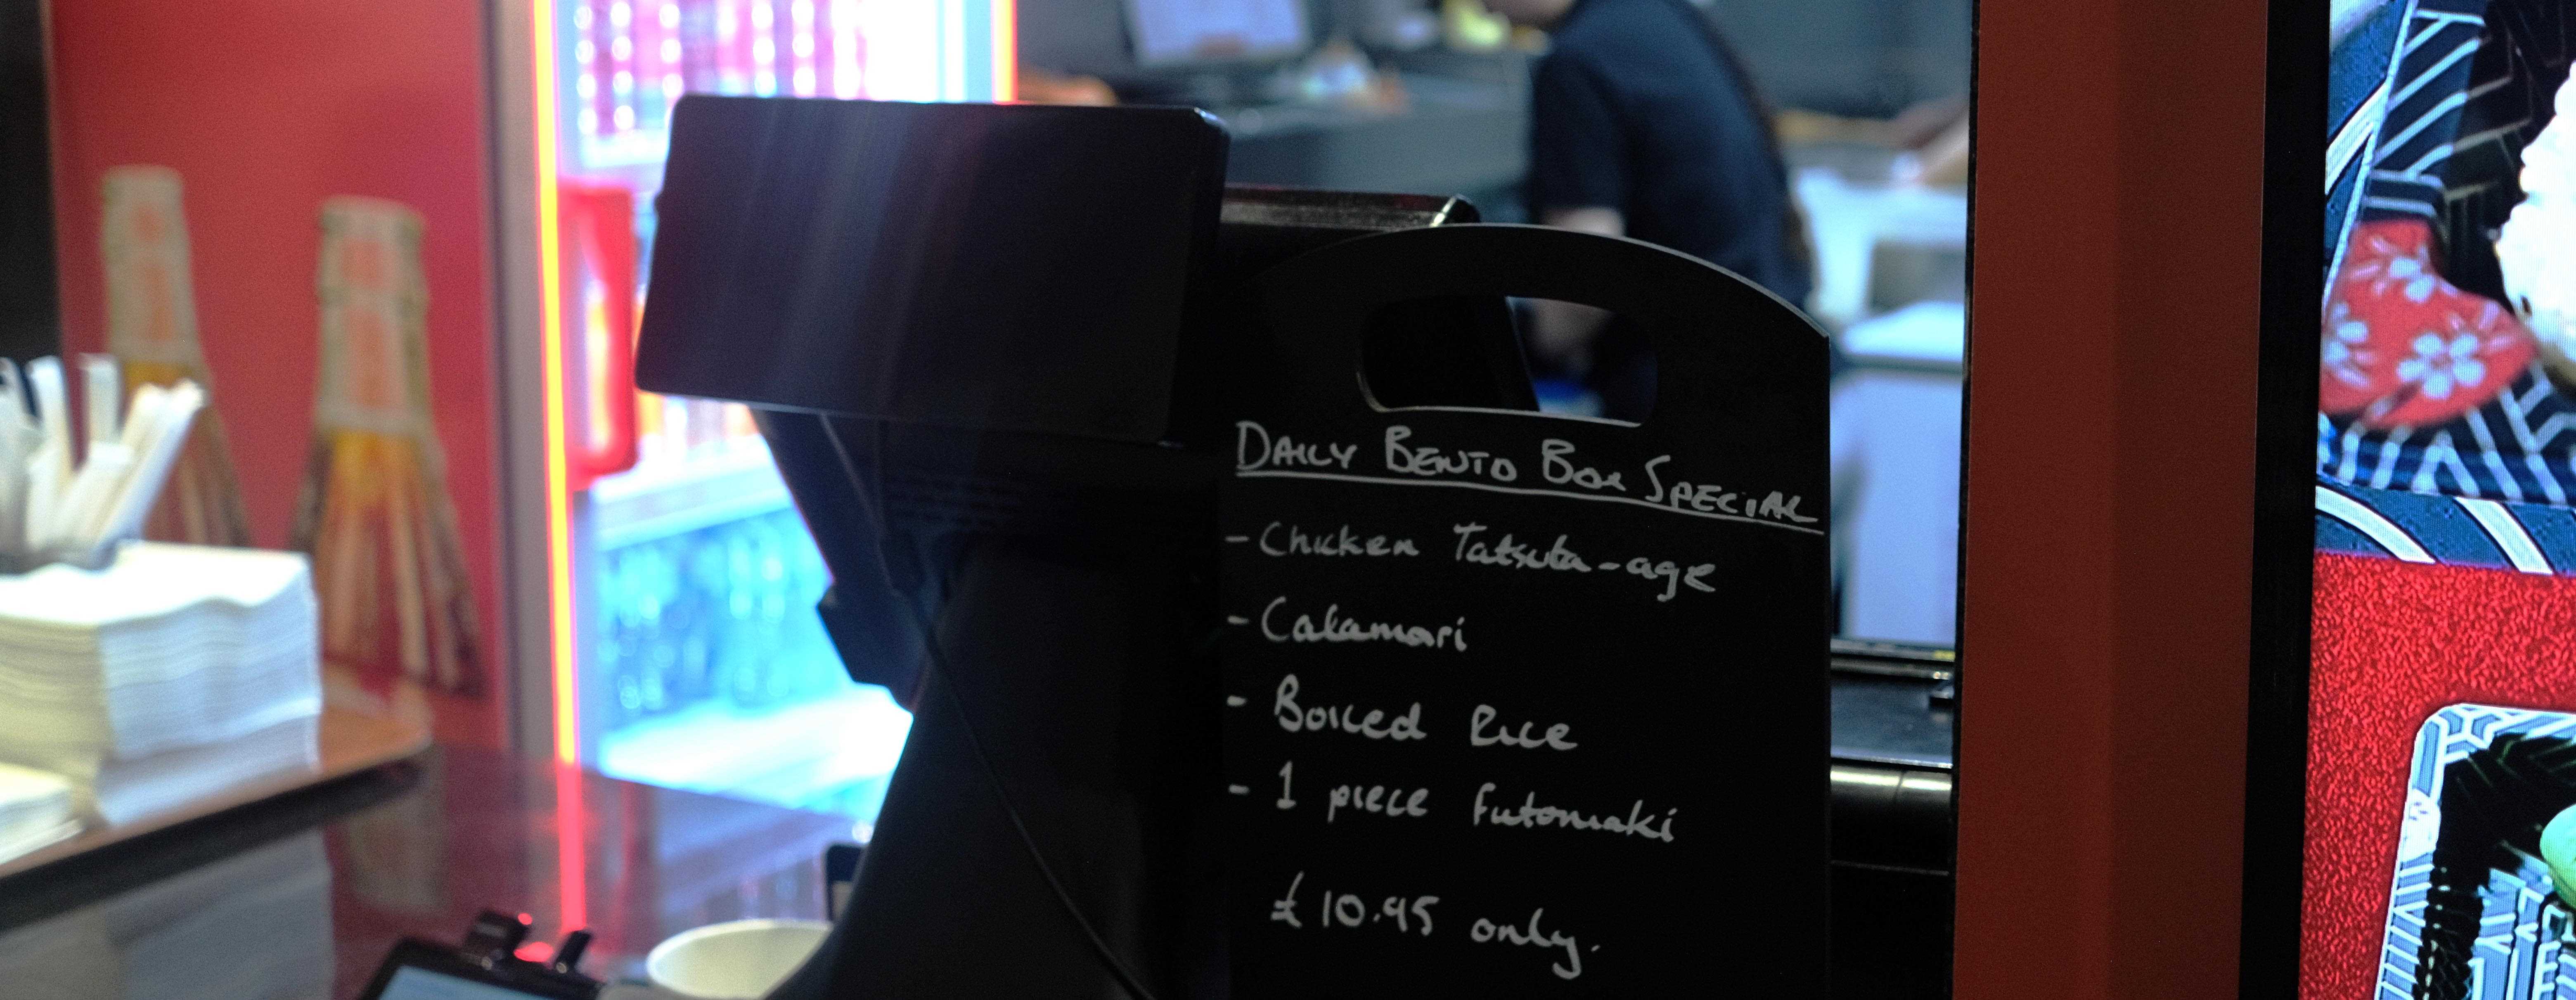 DAILY BENTO BOX SPECIAL
- Chicken Tatsuta-age
- Calamari
- Boiled Rice
- 1 piece futomaki
£10.95 only.